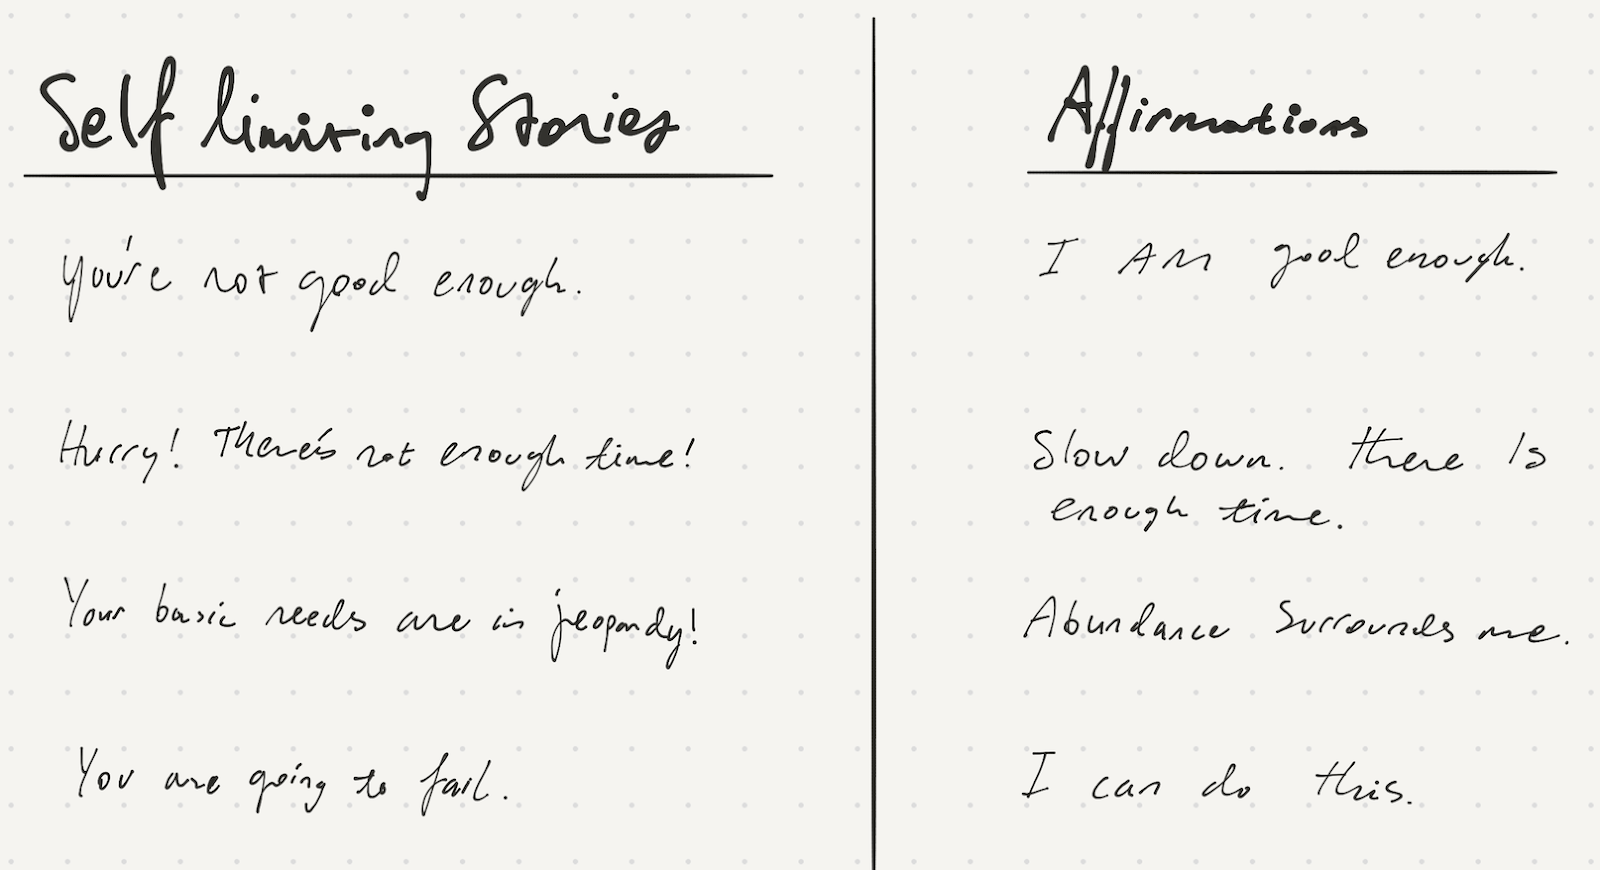 Self limiting Stories
You're not good enough.
Hurry! There's not enough time!
Your basic needs are in jeopardy!
You are going to fail.
Affirmations
I AM good enough.
Slow down. there Is
enough time.
Abundance Surrounds me.
I can do this.